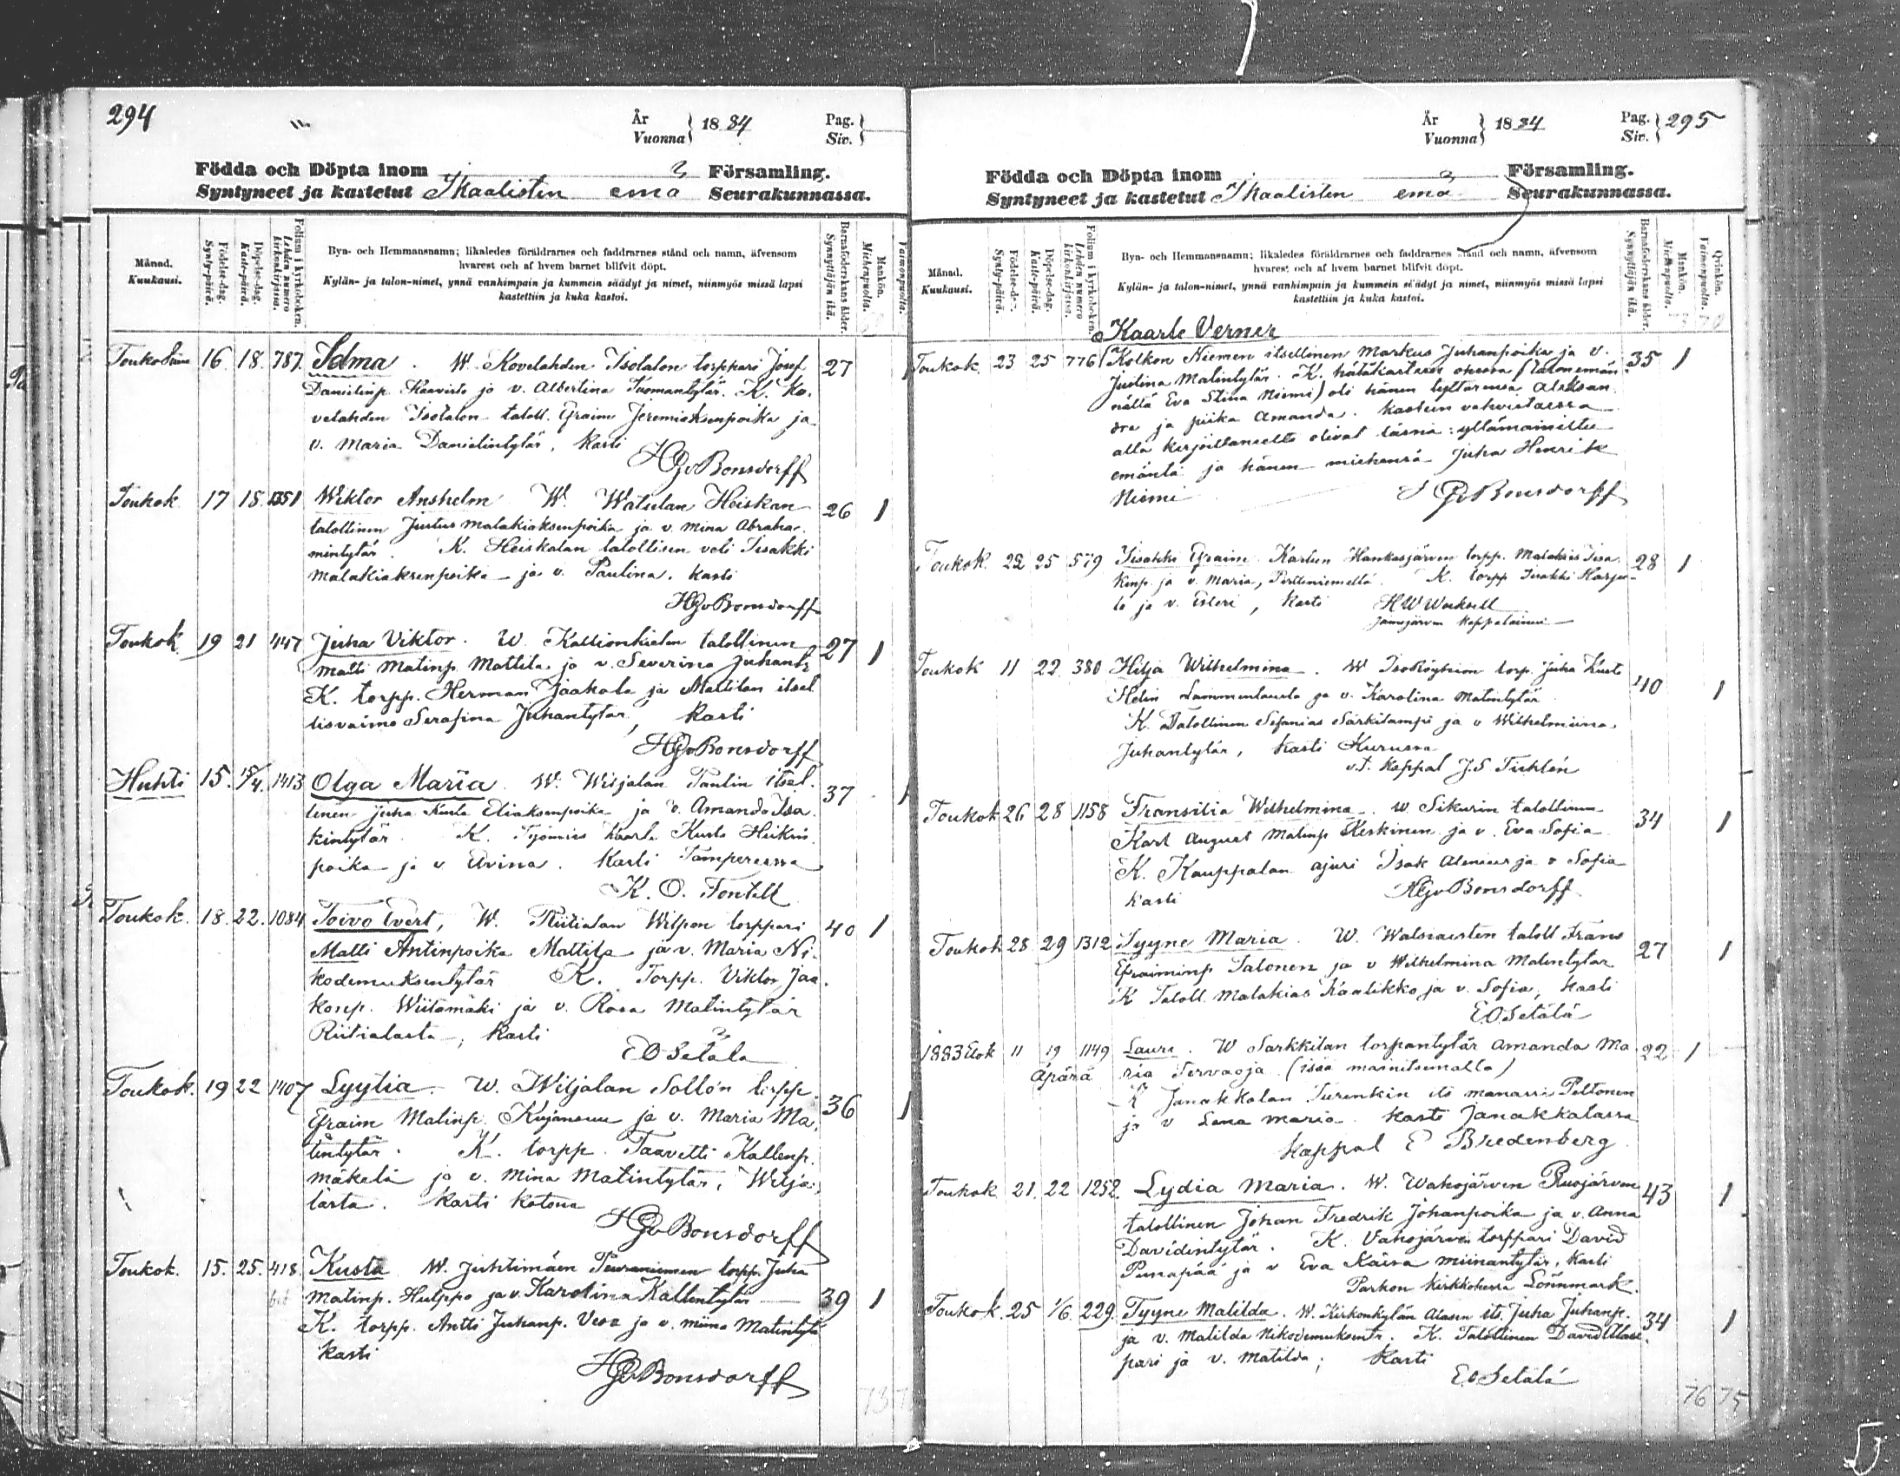 294
År
Vuonna
1884
Pag.
Siv.
Födda och Döpta inom
Församling.
Syntyneet ja kastetut Ikaalisten emä Seurakunnassa.
Månad.
Kuukausi.
Födelse-dag.
Synty-päivä.
Döpelse-dag.
Kaste-päivä.
Folium i kyrkoboken.
Lehden numero kirkonkirjassa.
Bya- och Hemmansnamn; likaledes föräldrarnes och faddrarnes stånd och namn, äfvensom
hvarest och af hvem barnet blifvit döpt.
Kylän- ja talon-nimet, ynnä vanhimpain ja kummein säädyt ja nimet, niinmyös missä lapsi
kastettiin ja kuka kastoi.
Barnaföderskans ålder.
Synnyttäjän ikä.
Mankön.
Miehenpuolta.
Vaimonpuolta.
16 18 787 Selma. W. Kovelahden Isotalon torppari Josef 27
Danielinp. Haavisto ja v. Albertina Tuomantytär. K. Ko-
velahden Isotalon taloll. Efraim Jeremiaksenpoika ja
v. Maria Danielintytär, kasti
HGvBonsdorff
Toukok 17 18 1351 Wiktor Anshelm W. Watulan Heiskan 26 1
talollinen Justus Malakiaksenpoika ja v. Mina Abraha-
mintytär. K. Heiskalan talollisen veli Iisakki
Malakiaksenpoika ja v. Paulina. kasti
HGvBonsdorff
Toukok 19 21 447 Juha Viktor. W. talollinen 27 1
Matti Matinp. Mattila ja v. Severina Juhant.
K. torpp. Herman Jaakola ja Mattilan itsel
lisvaimo Serafina Juhantytär, kasti
HGvBonsdorff
Huhti 15. 15/4. 1413 Olga Maria. W. Wiljalan Paulin itsel- 37 1
linen Juha Kusta Eliaksenpoika ja v. Amanda Isa-
kintytär. K. Työmies Kaarle Kusta Heikin
poika ja v Evina. Kasti Tampereessa
K. O. Fontell
Toukok. 18. 22. 1084 Toivo Evert, W. Riitialan Wilpon torppari 40 1
Matti Antinpoika Mattila ja v. Maria Ni-
kodemuksentytär K. Torpp. Viktor Jaa-
konp. Wiitamäki ja v. Rosa Matintytär
Riitialasta, kasti
E O Setälä
Toukok. 19 22 1407 Lyytia. W. Wiljalan Sollon torpp. 36 1
Efraim Matinp. Kujansuu ja v. Maria Ma-
tintytär. K. torpp. Taavetti Kallenp.
mäkelä ja v. Mina Matintytär, Wilja-
lasta. Kasti kotona
HGvBonsdorff
Toukok. 15. 25. 418 Kusta W. Juhtimäen torpp. Juha
Matinp. Hulppo ja v. Karolina Kallentytär 39 1
K. torpp. Antti Juhanp. Vesa ja v. miina Matintytä
kasti
HGvBonsdorff
År
Vuonna
1884
Pag.
Siv.
295
Födda och Döpta inom
Församling.
Syntyneet ja kastetut Ikaalisten emä Seurakunnassa.
Månad.
Kuukausi.
Födelse-dag.
Synty-päivä.
Döpelse-dag.
Kaste-päivä.
Folium i kyrkoboken.
Lehden numero kirkonkirjassa.
Bya- och Hemmansnamn; likaledes föräldrarnes och faddrarnes stånd och namn, äfvensom
hvarest och af hvem barnet blifvit döpt.
Kylän- ja talon-nimet, ynnä vanhimpain ja kummein säädyt ja nimet, niinmyös missä lapsi
kastettiin ja kuka kastoi.
Barnaföderskans ålder.
Synnyttäjän ikä.
Mankön.
Miehenpuolta.
Qvinkön.
Vaimonpuolta.
Kaarle Verner
Toukok 23 25 776 Kolkon Niemen itsellinen Markus Juhanpoika ja v. 35 1
Justina Matintytär. K. hätäkasteen ohessa (talon emän-
nältä Eva Stina Niemi) oli hänen tyttärensä Aleksan-
dra ja piika Amanda. kasteen vahvistaessa
alla kirjoittaneelta olivat läsnä: yllämainittu
emäntä ja hänen miehensä Juha Henrik
Niemi
HGvBonsdorff
Toukok 22 25 579 Iisakki Efraim. Kartun Hankasjärven torpp. Malakias Iisa- 28 1
kinp. ja v. Maria, Perttuniemeltä. K. torpp Iisakki Harju-
la ja v. Esteri, kasti H W Wacksell
Jämijärven kappalainen
Toukok 11 22 380 Hilja Wilhelmina. W torp. Juha Kusta 40 1
Helin ja v. Karolina Matintytär
K. Talollinen Sefanias Särkilampi ja v Wilhelmiina
Juhantytär, kasti Kurussa
v.t. kappal J.S Tuhlén
Toukok 26 28 1158 Fransilia Wilhelmina. W Sikurin talollinen 34 1
Karl August Matinp Keskinen ja v. Eva Sofia
K. Kauppalan ajuri Isak ja v Sofia
kasti HGvBonsdorff
Toukok 28 29 1312 Tyyne Maria. W. taloll Frans 27 1
Efraiminp Talonen ja v Wilhelmina Matintytär
K Taloll Malakias Kaalikko ja v. Sofia, kasti
E.O Setälä
1883 Elok 11 19 1149 Lauri. W Sarkkilan torpantytär Amanda Ma 22 1
Äpärä ria Servaoja (isää mainitsematta)
K Janakkalan Turenkin its mamasi Peltonen
ja v Lena maria. kasti Janakkalassa
Kappal E Bredenberg
Toukok 21. 22 1252 Lydia Maria. W. Wahojärven Ruojärven 43 1
talollinen Johan Fredrik Johanpoika ja v. Anna
Davidintytär. K. Vahojärven torppari David
Punapää ja v Eva Kaisa miinantytär, kasti
Parkon kirkkoherra Lönnmark.
Toukok. 25 1/6 229. Tyyne Matilda. W. Kirkonkylän Alasen its Juha Juhanp. 34 1
ja v. Matilda Nikodemuksentr. K. Talollinen David Alase-
pari ja v. Matilda; kasti
E.O Setälä
76 75